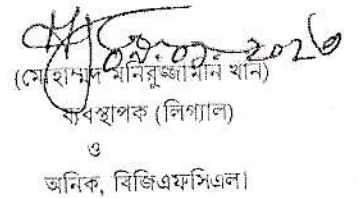 ২০২৬
(মোহাম্মদ মনিরুজ্জামান খান)
ব্যবস্থাপক (লিগ্যাল)
ও
অনিক, বিজিএফসিএল।